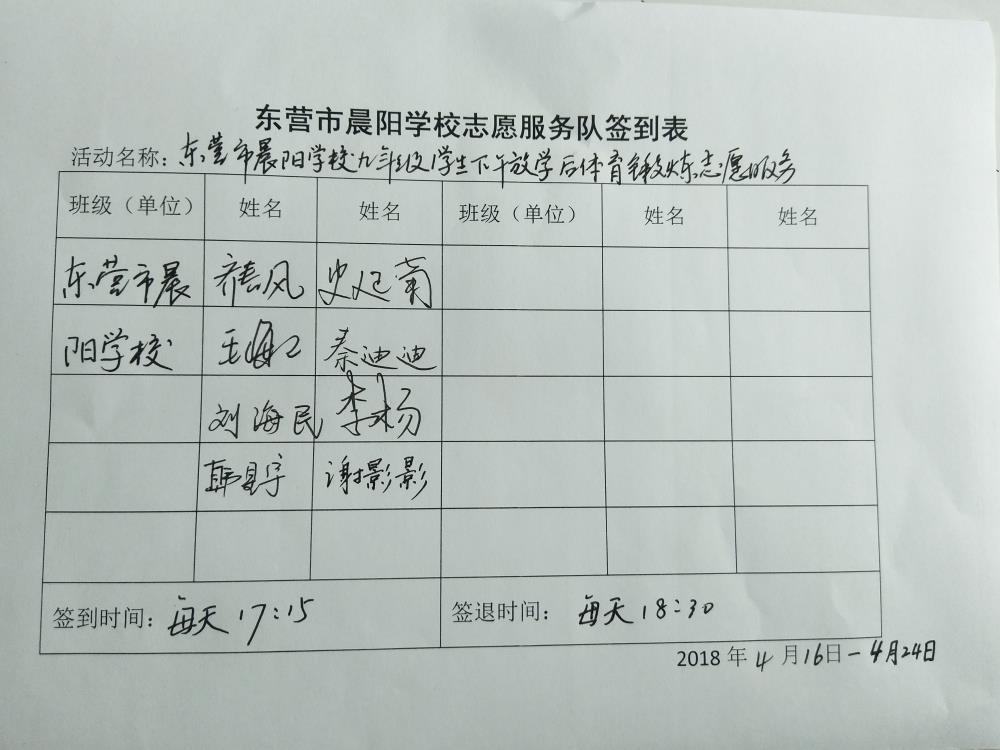 东营市晨阳学校志愿服务队签到表
活动名称：东营市晨阳学校九年级学生下午放学后体育锻炼志愿服务
班级（单位） 姓名 姓名 班级（单位） 姓名 姓名
东营市晨 风 史延南
阳学校 王海江 秦迪迪
刘海民 李杨
韩 宇 谢影影
签到时间：每天17:15 签退时间：每天18:30
2018年4月16日-4月24日